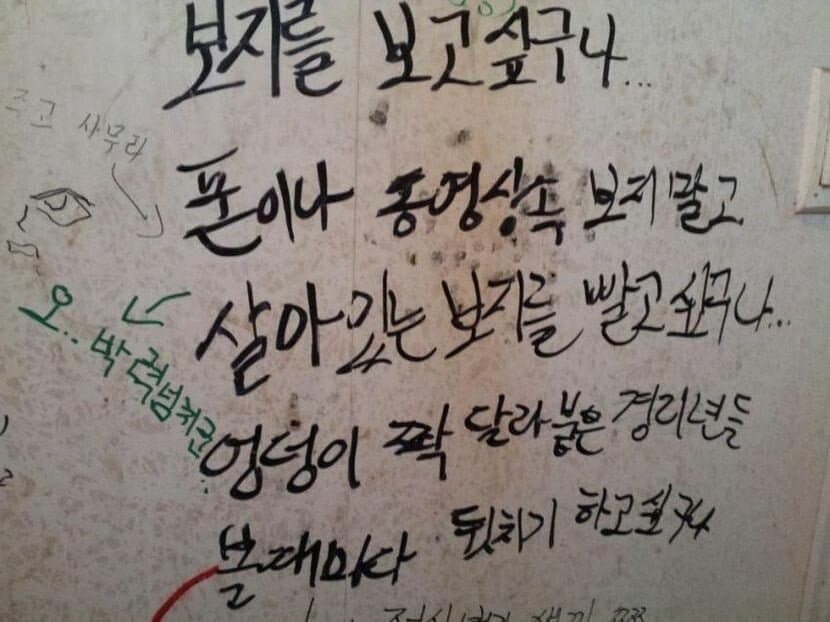 보지를 보고싶구나...
즈고 사무라
폰이나 동영상속 보지말고
살아있는 보지를 빨고싶구나...
오.. 박력넘치군..
엉덩이 짝 달라붙은 경리년들
볼때마다 뒷치기 하고싶구나